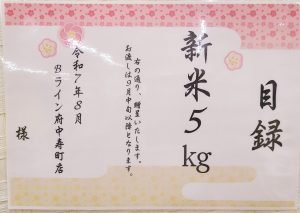 目録
新米5kg
右の通り、贈呈いたします。
お渡しは9月中旬以降となります。
令和7年8月
Bライン府中寿町店
様